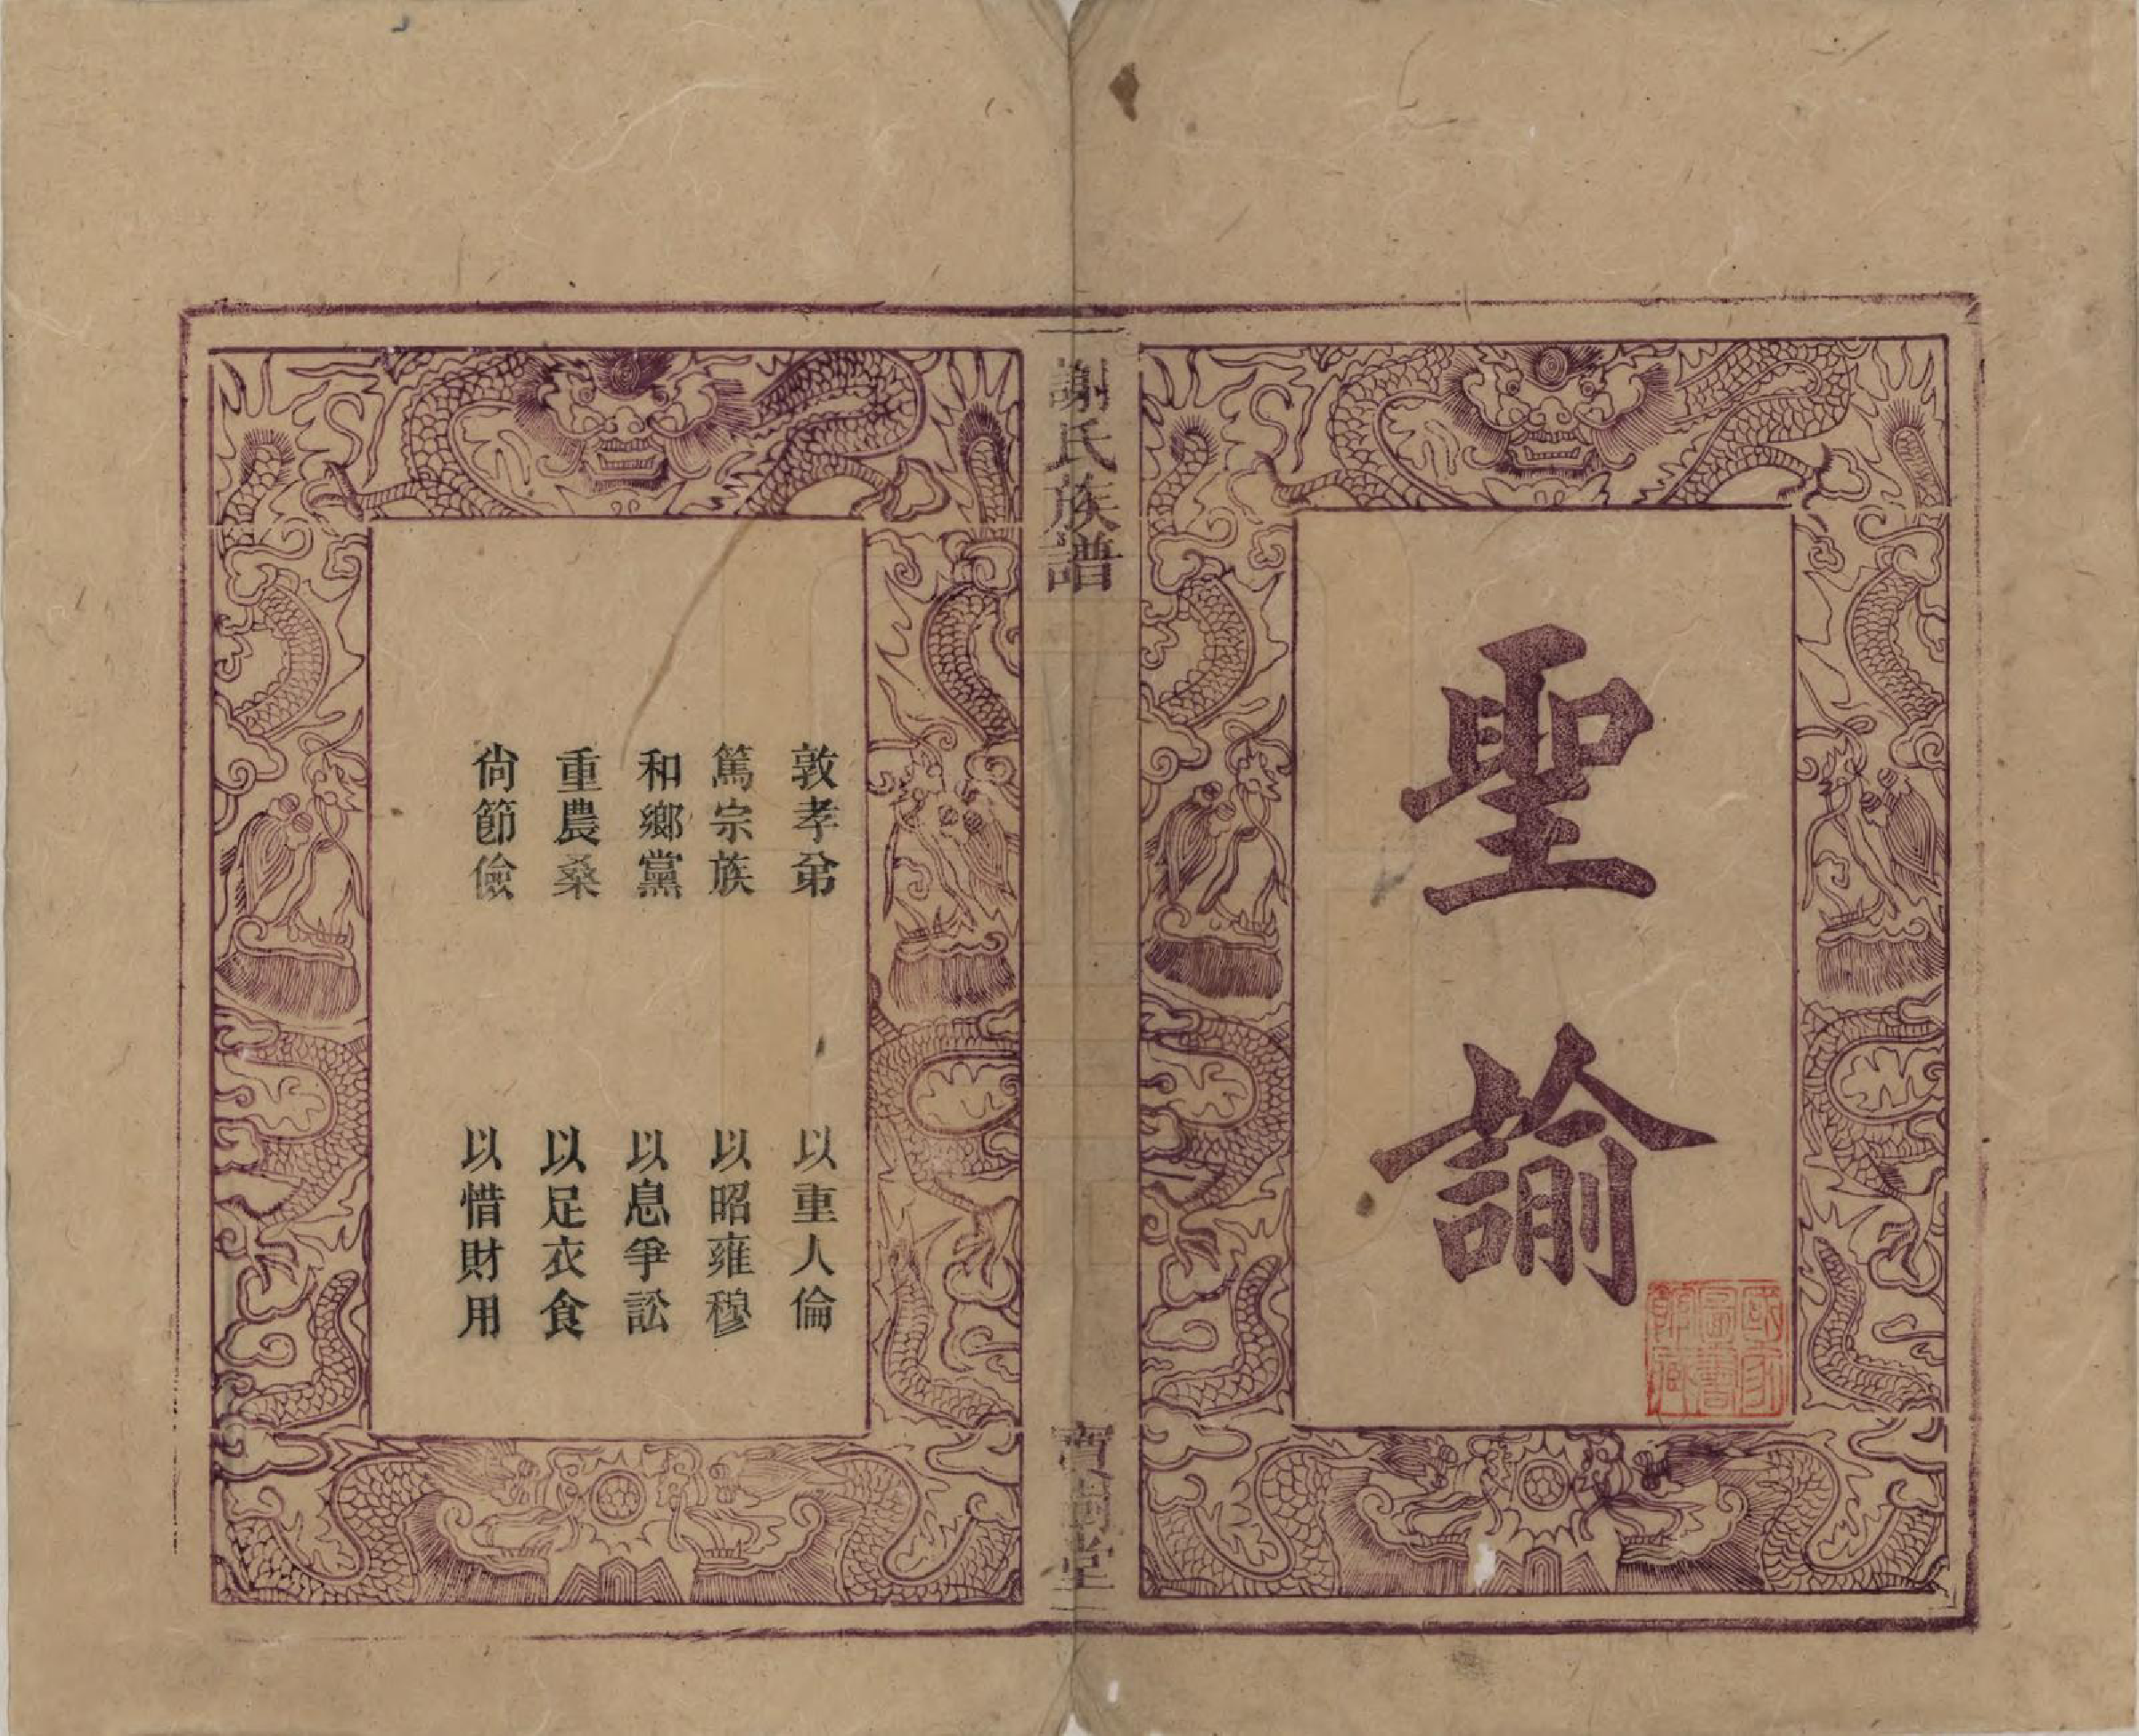 聖諭
謝氏族譜
寶樹堂
敦孝弟 以重人倫
篤宗族 以昭雍穆
和鄉黨 以息爭訟
重農桑 以足衣食
尙節儉 以惜財用
國家圖書館藏